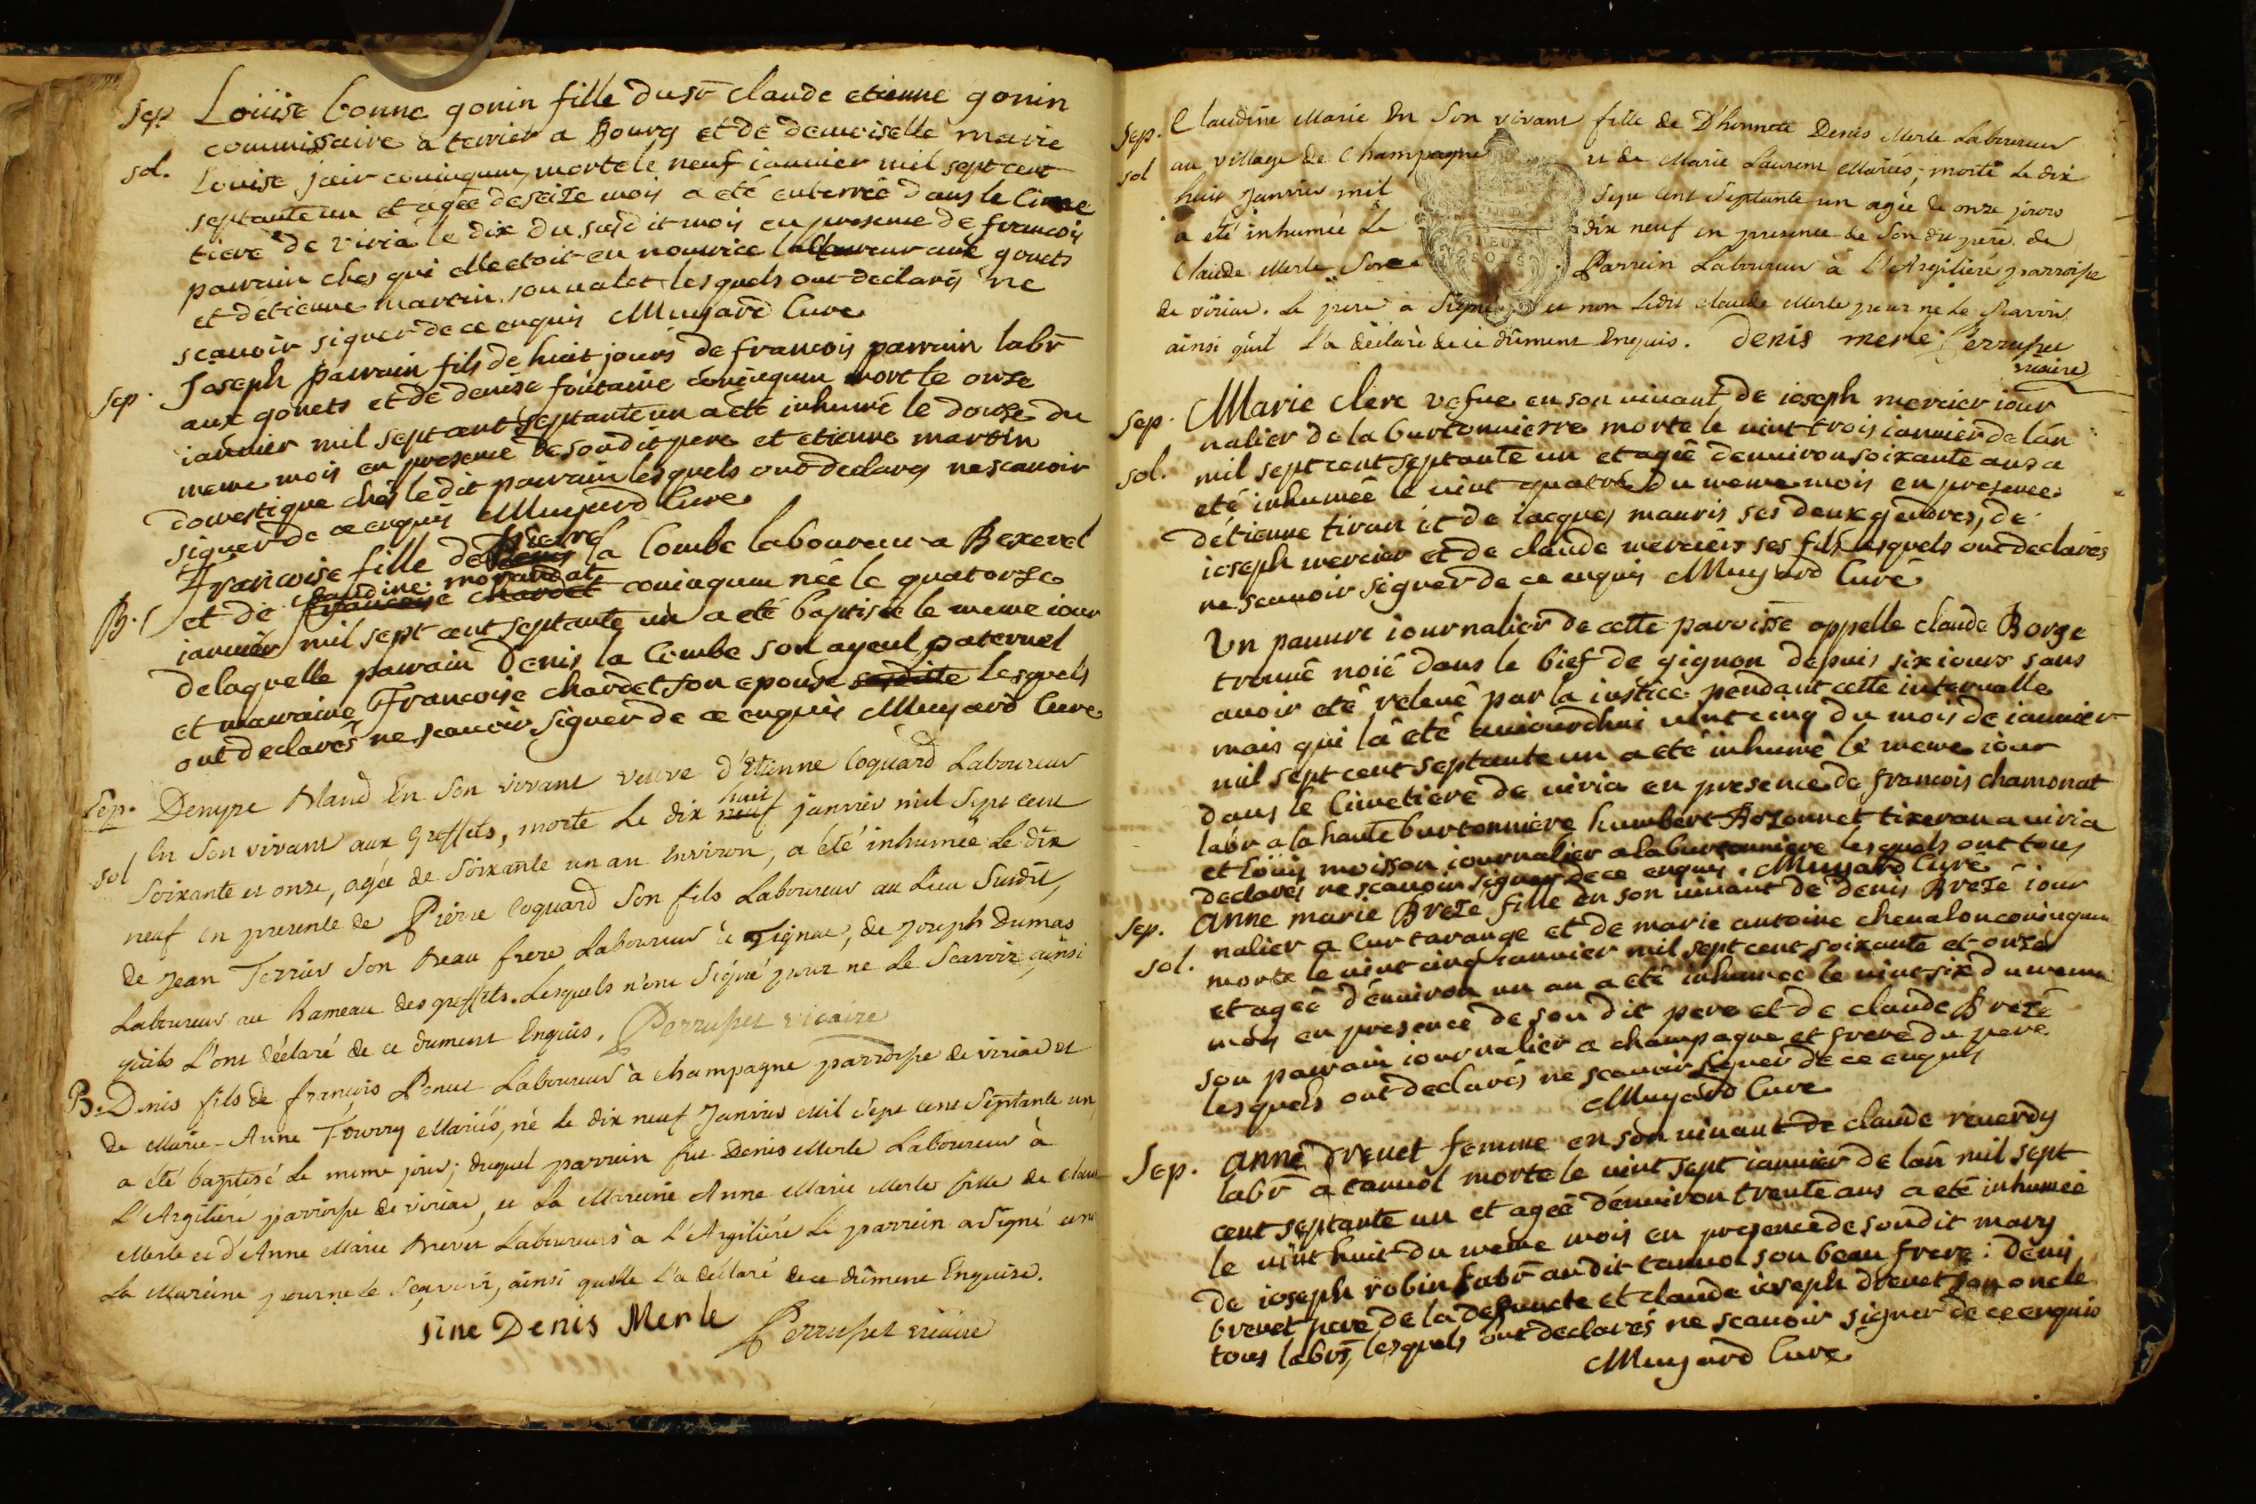 Sep Loüise bonne gonin fille du sr claude etienne gonin
commissaire a terrier a Bourg et de demoiselle marie
sol. Louise jair coniugum, morte le neuf ianuier mil sept cent
septante un et agée de seize mois a eté enterrée dans le Cime
tiere de viria le dix du susdit mois en presence de francois
parrain ches qui elle etoit en nourrice laboureur aux gouets
et d'etienne martin son valet lesquels ont declarés ne
scauoir signer de ce enquis Muyard Curé
Sep. Joseph parrain fils de huit jours de francois parrain labr
aux gouets et de denise fontaine coniugum mort le onze
ianuier mil sept cent septante un a eté inhumé le douze du
meme mois en presence de son dit pere et etienne martin
domestique chés le dit parrain lesquels ont declarés ne scauoir
signer de ce enquis Muyard Curé
francoise fille de pierre la Combe laboureur a Bexerel
B. et de claudine morandat coniugum née le quatorze
ianuier mil sept cent septante un a eté baptisée le meme iour
de laquelle parrain Denis la Combe son ayeul paternel
et marraine Francoise chardet son epouse susditte lesquels
ont declarés ne scauoir signer de ce enquis Muyard Curé
Sep. Denyse Bland En Son vivant veuve d'Etienne Coquard Laboureur
En Son vivant aux Greffets, morte Le dix huit janvier mil Sept cent
sol Soixante et onze, agée de Soixante un an Environ, a été inhumée Le dix
neuf en presence de Pierre Coquard Son fils Laboureur au Lieu Susdit,
de Jean Terrier Son Beau frere Laboureur à Tignat, de Joseph Dumas
Laboureur au hameau des greffets. Lesquels n'ont Signé pour ne Le Scavoir, ainsi
qu'ils L'ont déclaré de ce dument Enquis. Perruset vicaire
B. Denis fils de françois Penet Laboureur à champagne parroisse de viriat et
de Marie-Anne Fowrry Mariés, né Le dix neuf Janvier Mil Sept cent Septante un
a été baptisé Le meme jour; duquel parrein fut Denis Merle Laboureur à
L'Argiliére parroisse de viriat, et La Mareine Anne Marie Merle fille de Claude
Merle et d'Anne Marie Brevet Laboureurs à L'Argiliére Le parrein a Signé et non
La Mareine pour ne Le Sçavoir, ainsi qu'elle L'a déclaré de ce dûment Enquise.
sine Denis Merle Perruset vicaire
Sep. Claudine Marie En Son vivant fille de D'honnete Denis Merle Laboureur
sol au village de Champagne et de Marie Laurent Mariés; morte Le dix
huit Janvier mil Sept cent Septante un agée de onze jours
a été inhumée Le dix neuf en presence de Son dit père de
Claude Merle Son Parrein Laboureur à L'Argiliére parroisse
de viriat. Le père a Signé et non Ledit Claude Merle pour ne Le Scavoir
ainsi qu'il L'a déclaré de ce dûment Enquis. Denis merle Perruset
vicaire
Sep. Marie clerc vefue en son uiuant de ioseph mercier iour
nalier de la burtonnierre morte le uint trois ianuier de l'an
sol. mil sept cent septante un et agée d'enuiron soixante ans a
eté inhumée le uint quatre du meme mois en presence
d'etienne tiran et de iacques mauris ses deux gendres, de
ioseph mercier et de claude mercier ses fils lesquels ont declarés
ne scauoir signer de ce enquis Muyard Curé
Un pauure iournalier de cette paroisse appellé claude Borge
trouué noié dans le bief de gignon depuis six iours sans
auoir eté releué par la iustice pendant cette interualle
mais qui l'a eté auiourdhui uint cinq du mois de ianuier
mil sept cent septante un a eté inhumé le meme iour
dans le Cimetiere de uiria en presence de francois chamonat
labr a la haute burtonniere humbert Bozonnet tixeran a uiria
et Loüis moisson iournalier a la burtonniere lesquels ont tous
declarés ne scauoir signer de ce enquis. Muyard Curé
Sep. anne marie Brezé fille en son uiuant de denis Brezé iour
nalier a Curtarange et de marie antoine cheualon coniugum
sol. morte le uint cinq ianuier mil sept cent soixante et onze
et ageé d'enuiron un an a eté inhumée le uint-six du meme
mois en presence de son dit pere et de claude Brezé
son parrain iournalier a champagne et frere du pere
lesquels ont declarés ne scauoir signer de ce enquis
Muyard Curé
Sep. anne Dreuet femme en son uiuant de claude reuerdy
labr a tanuol morte le uint sept ianuier de l'an mil sept
cent septante un et ageé d'enuiron trente ans a eté inhumée
le uint huit du meme mois en presence de son dit mary
de ioseph robin labr audit tanuol son beau frere: denis
breuet pere de la defuncte et claude ioseph dreuet son oncle
tous labrs, lesquels ont declarés ne scauoir signer de ce enquis
Muyard Curé